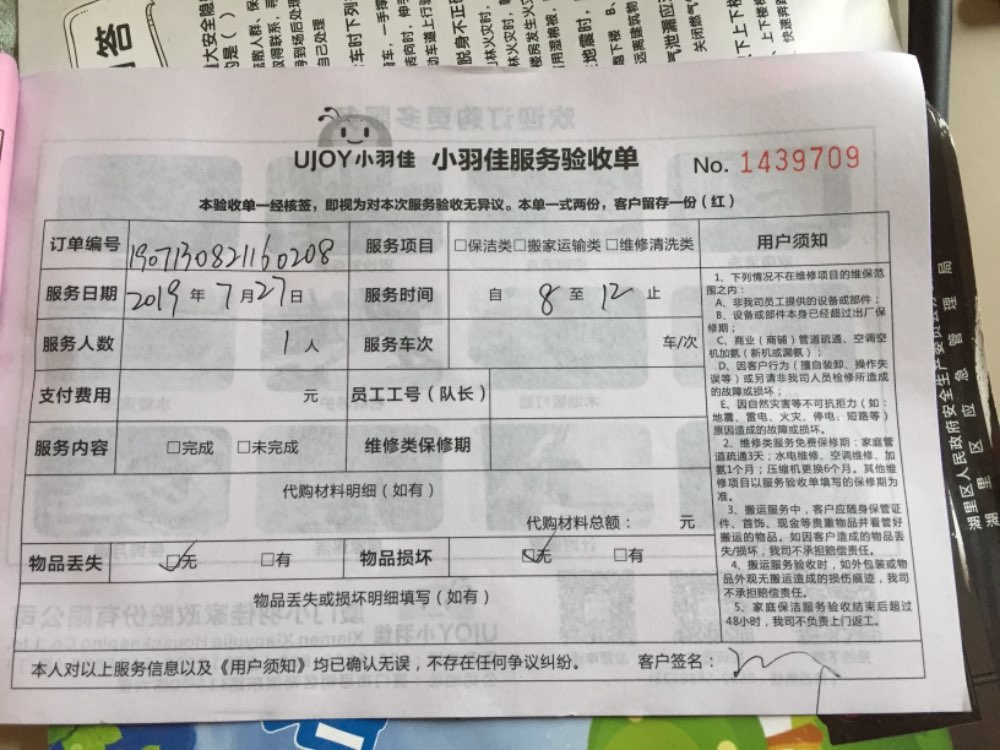 答
UJOY小羽佳 小羽佳服务验收单 No. 1439709
本验收单一经核签，即视为对本次服务验收无异议。本单一式两份，客户留存一份（红）
订单编号 1907130821160208 服务项目 □保洁类□搬家运输类□维修清洗类
服务日期 2019 年 7 月 27 日 服务时间 自 8 至 12 止
服务人数 1 人 服务车次 车/次
支付费用 元 员工工号（队长）
服务内容 □完成 □未完成 维修类保修期
代购材料明细（如有）
代购材料总额： 元
物品丢失 ☑无 □有 物品损坏 ☑无 □有
物品丢失或损坏明细填写（如有）
用户须知
1、下列情况不在维修项目的维保范
围之内：
A、非我司员工提供的设备或部件；
B、设备或部件本身已经超过出厂保
修期；
C、商业（商铺）管道疏通、空调空
机加氨（新机或漏氨）；
D、因客户行为（擅自装卸、操作失
误等）或另请非我司人员检修所造成
的故障或损坏；
E、因自然灾害等不可抗拒力（如：
地震、雷电、火灾、停电、短路等）
原因造成的故障或损坏。
2、维修类服务免费保修期：家庭管
道疏通3天；水电维修、空调维修、加
氨1个月；压缩机更换6个月。其他维
修项目以服务验收单填写的保修期为
准。
3、搬运服务中，客户应随身保管证
件、首饰、现金等贵重物品并看管好
搬运的物品。如因客户造成的物品丢
失/损坏，我司不承担赔偿责任。
4、搬运服务验收时，如外包装或物
品外观无搬运造成的损伤痕迹，我司
不承担赔偿责任。
5、家庭保洁服务验收结束后超过
48小时，我司不负责上门返工。
本人对以上服务信息以及《用户须知》均已确认无误，不存在任何争议纠纷。 客户签名：
湖里区人民政府安全生产委员会
湖里区应急管理局